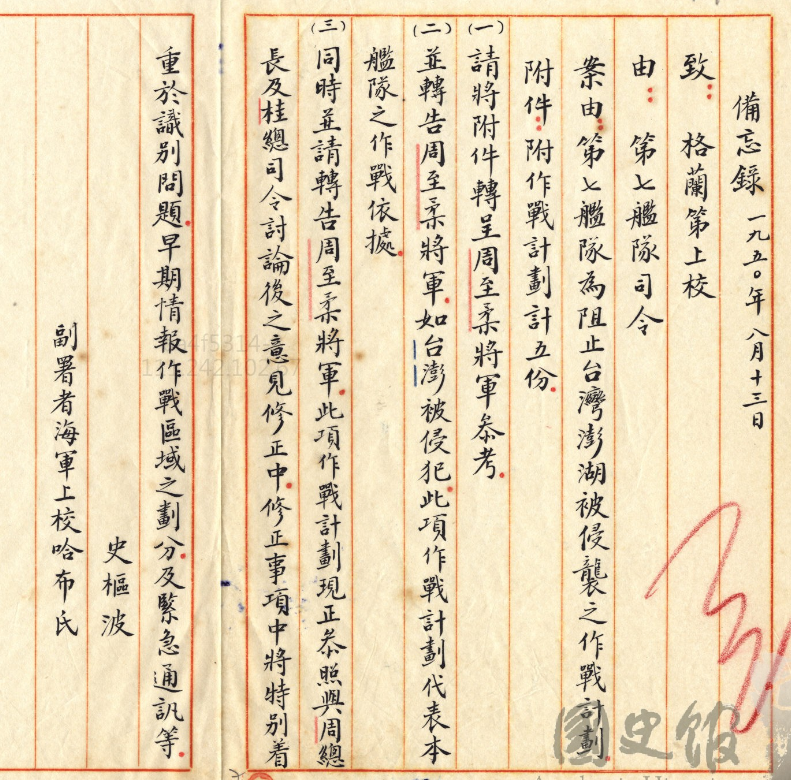 備忘錄 一九五〇年八月十三日
致：格蘭第上校
由：第七艦隊司令
案由：第七艦隊為阻止台灣澎湖被侵襲之作戰計劃。
附件：附作戰計劃計五份。
(一)請將附件轉呈周至柔將軍參考。
(二)並轉告周至柔將軍。如台澎被侵犯。此項作戰計劃代表本
艦隊之作戰依據。
(三)同時並請轉告周至柔將軍。此項作戰計劃現正參照與周總
長及桂總司令討論後之意見修正中。修正事項中將特別着
重於識別問題。早期情報作戰區域之劃分。及緊急通訊等。
史樞波
副署者海軍上校哈布氏
國史館